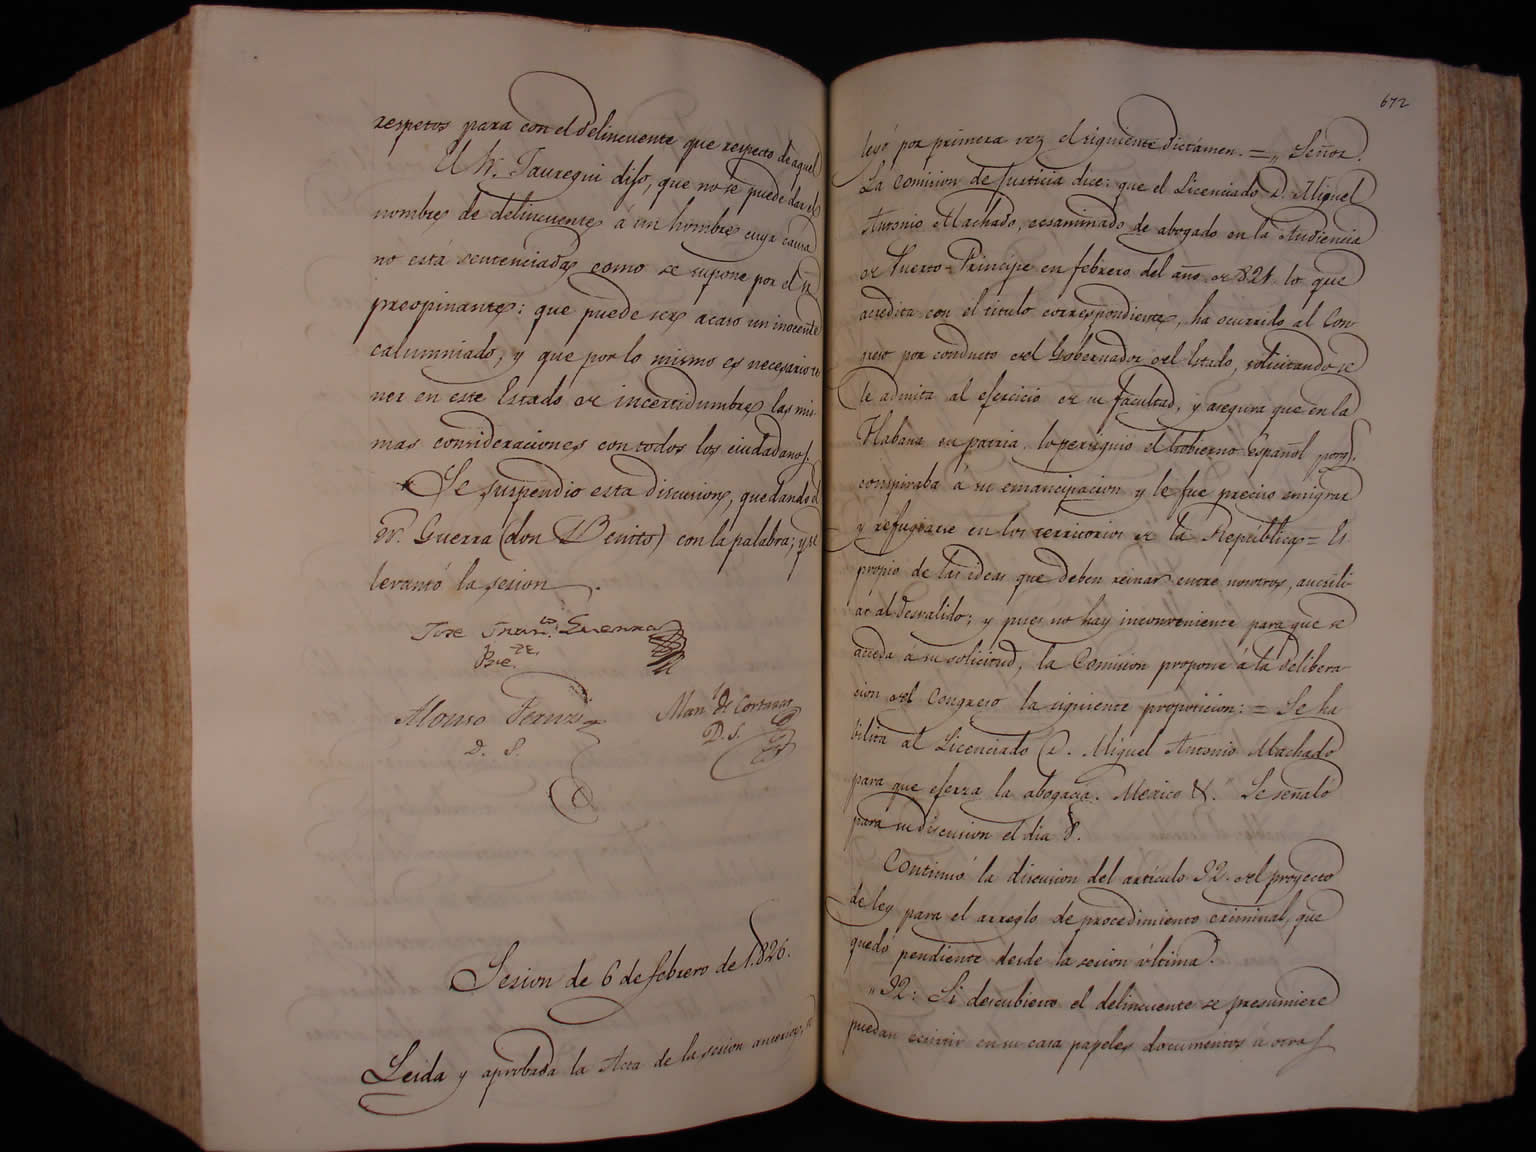 respetos para con el delincuente que respecto de aquel
El Sr. Jauregui dijo, que no se puede dar el
nombre de delincuente á un hombre cuya causa
no está sentenciada, como se supone por el Sr.
preopinante: que puede ser acaso un inocente
calumniado, y que por lo mismo es necesario te
ner en este Estado de incertidumbre las mis-
mas consideraciones con todos los ciudadanos.
Se suspendio esta discusion, quedando el
Sr. Guerra (don Benito) con la palabra; y se
levantó la sesion.
Jose Fran.co Guerra
Pre.te
Alonso Fernz
D. S.
Man.l de Cortazar
D. S.
Sesion de 6 de febrero de 1.826.
Leida y aprobada la Acta de la sesion anterior, se
672
leyó por primera vez el siguiente dictámen. = „ Señor.
La Comision de Justicia dice: que el Licenciado D. Miguel
Antonio Machado, ecsaminado de abogado en la Audiencia
de Puerto-Principe en febrero del año de 821. lo que
acredita con el titulo correspondiente, ha ocurrido al Con-
greso por conducto del Gobernador del Estado, solicitando se
le admita al ejercicio de su facultad, y asegura que en la
Habana su patria, lo persiguio el Gobierno Español porq.
conspiraba á su emancipacion y le fue preciso emigrar
y refugiarse en los territorios de la República = Es
propio de las ideas que deben reinar entre nosotros, aucsili-
ar al desvalido; y pues no hay inconveniente para que se
acceda á su solicitud, la Comision propone á la delibera-
cion del Congreso la siguiente proposicion: = Se ha
bilita al Licenciado D. Miguel Antonio Machado
para que ejerza la abogacia. Mexico &." Se señaló
para su discusion el dia 8.
Continuó la discusion del artículo 92. del proyecto
de ley para el arreglo de procedimiento criminal, que
quedó pendiente desde la sesion última.
„ 92: Si descubierto el delincuente se presumiere
puedan ecsistir en su casa papeles documentos ú otras